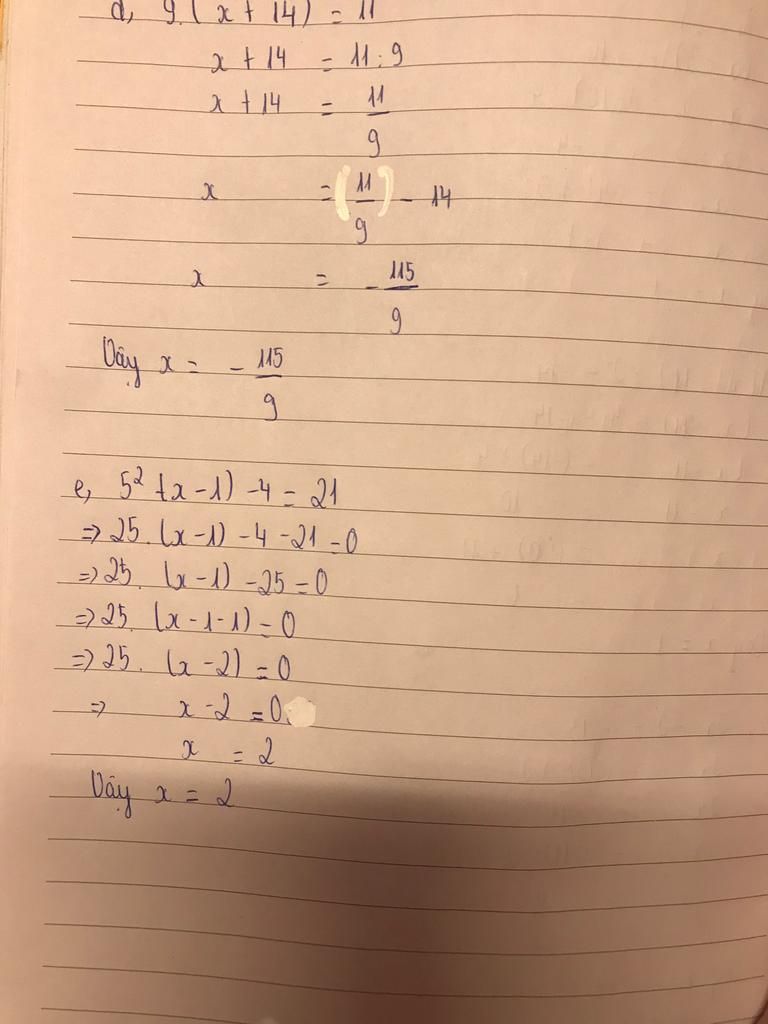 d, 9.(x + 14) = 11
x + 14 = 11 : 9
x + 14 = 11/9
x = (11/9) - 14
x = - 115/9
Vậy x = - 115/9
e, 5² (x - 1) - 4 = 21
=> 25. (x - 1) - 4 - 21 = 0
=> 25. (x - 1) - 25 = 0
=> 25. (x - 1 - 1) = 0
=> 25. (x - 2) = 0
=> x - 2 = 0.
x = 2
Vậy x = 2